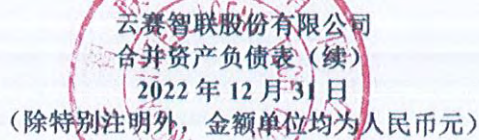 云赛智联股份有限公司
合并资产负债表（续）
2022 年 12 月 31 日
（除特别注明外，金额单位均为人民币元）